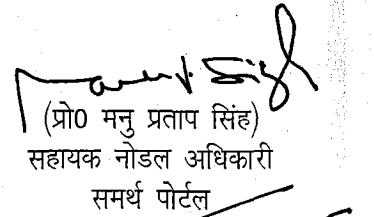 (प्रो0 मनु प्रताप सिंह)
सहायक नोडल अधिकारी
समर्थ पोर्टल